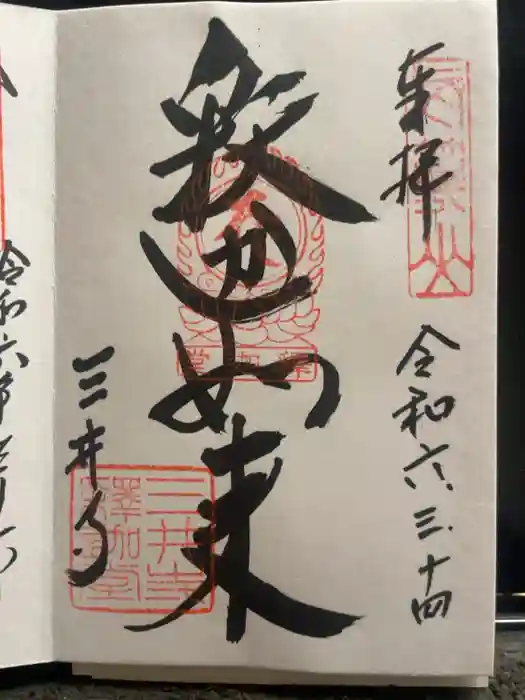 奉拝
令和六.三.十四
釈迦如来
三井寺
釋迦堂
三井寺
釋迦堂
令和六年